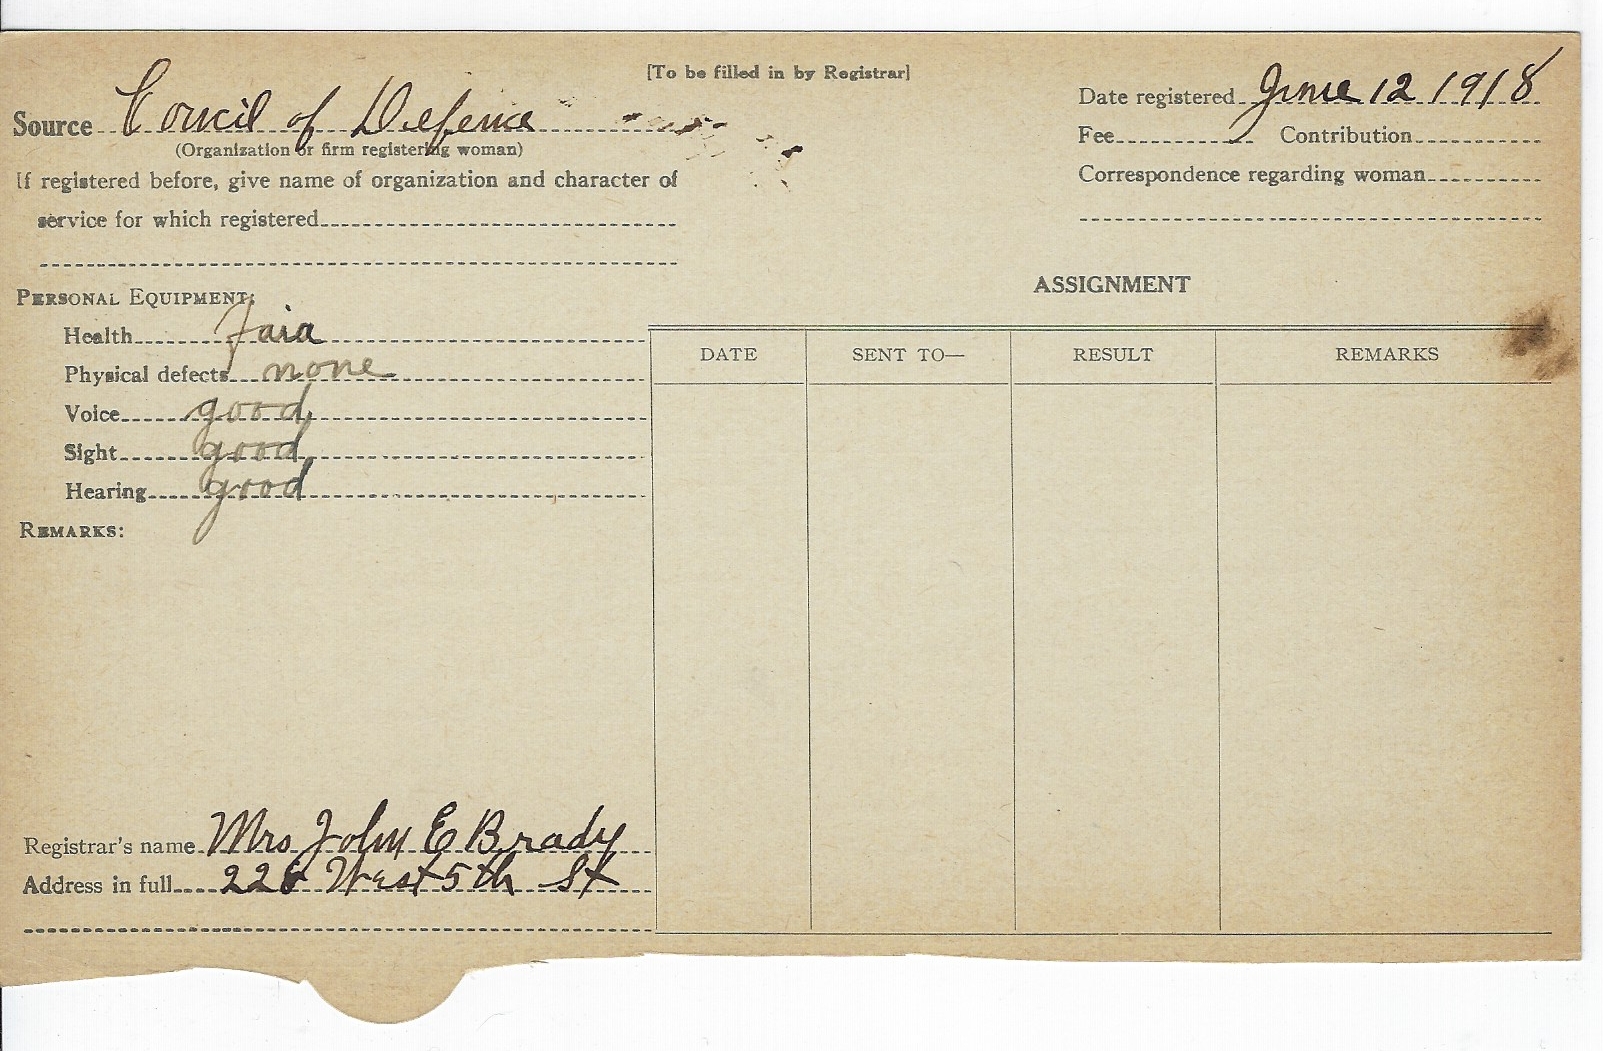 [To be filled in by Registrar]
Source Council of Defense
(Organization or firm registering woman)
If registered before, give name of organization and character of
service for which registered
Date registered June 12 1918
Fee Contribution
Correspondence regarding woman
PERSONAL EQUIPMENT:
Health Fair
Physical defects none
Voice good
Sight good
Hearing good
REMARKS:
ASSIGNMENT
DATE SENT TO— RESULT REMARKS
Registrar's name Mrs John E Brady
Address in full West 5th St